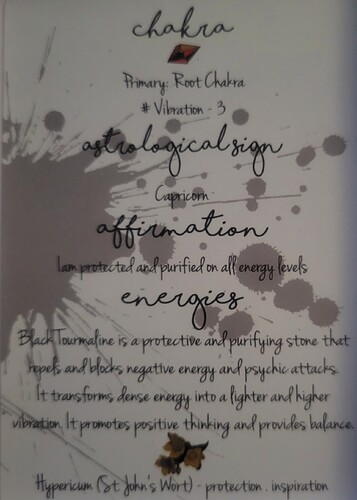 chakra
Primary: Root Chakra
# Vibration - 3
astrological sign
Capricorn
affirmation
I am protected and purified on all energy levels
energies
Black Tourmaline is a protective and purifying stone that
repels and blocks negative energy and psychic attacks.
It transforms dense energy into a lighter and higher
vibration. It promotes positive thinking and provides balance.
Hypericum (St. John's Wort) - protection . inspiration